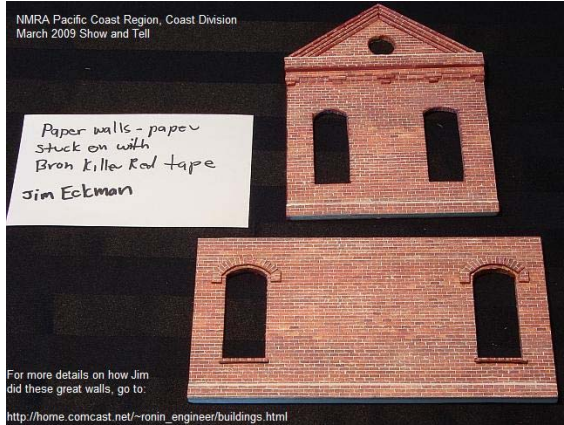 NMRA Pacific Coast Region, Coast Division
March 2009 Show and Tell
Paper walls - paper
stuck on with
Bron Killer Red tape
Jim Eckman
For more details on how Jim
did these great walls, go to:
http://home.comcast.net/~ronin_engineer/buildings.html